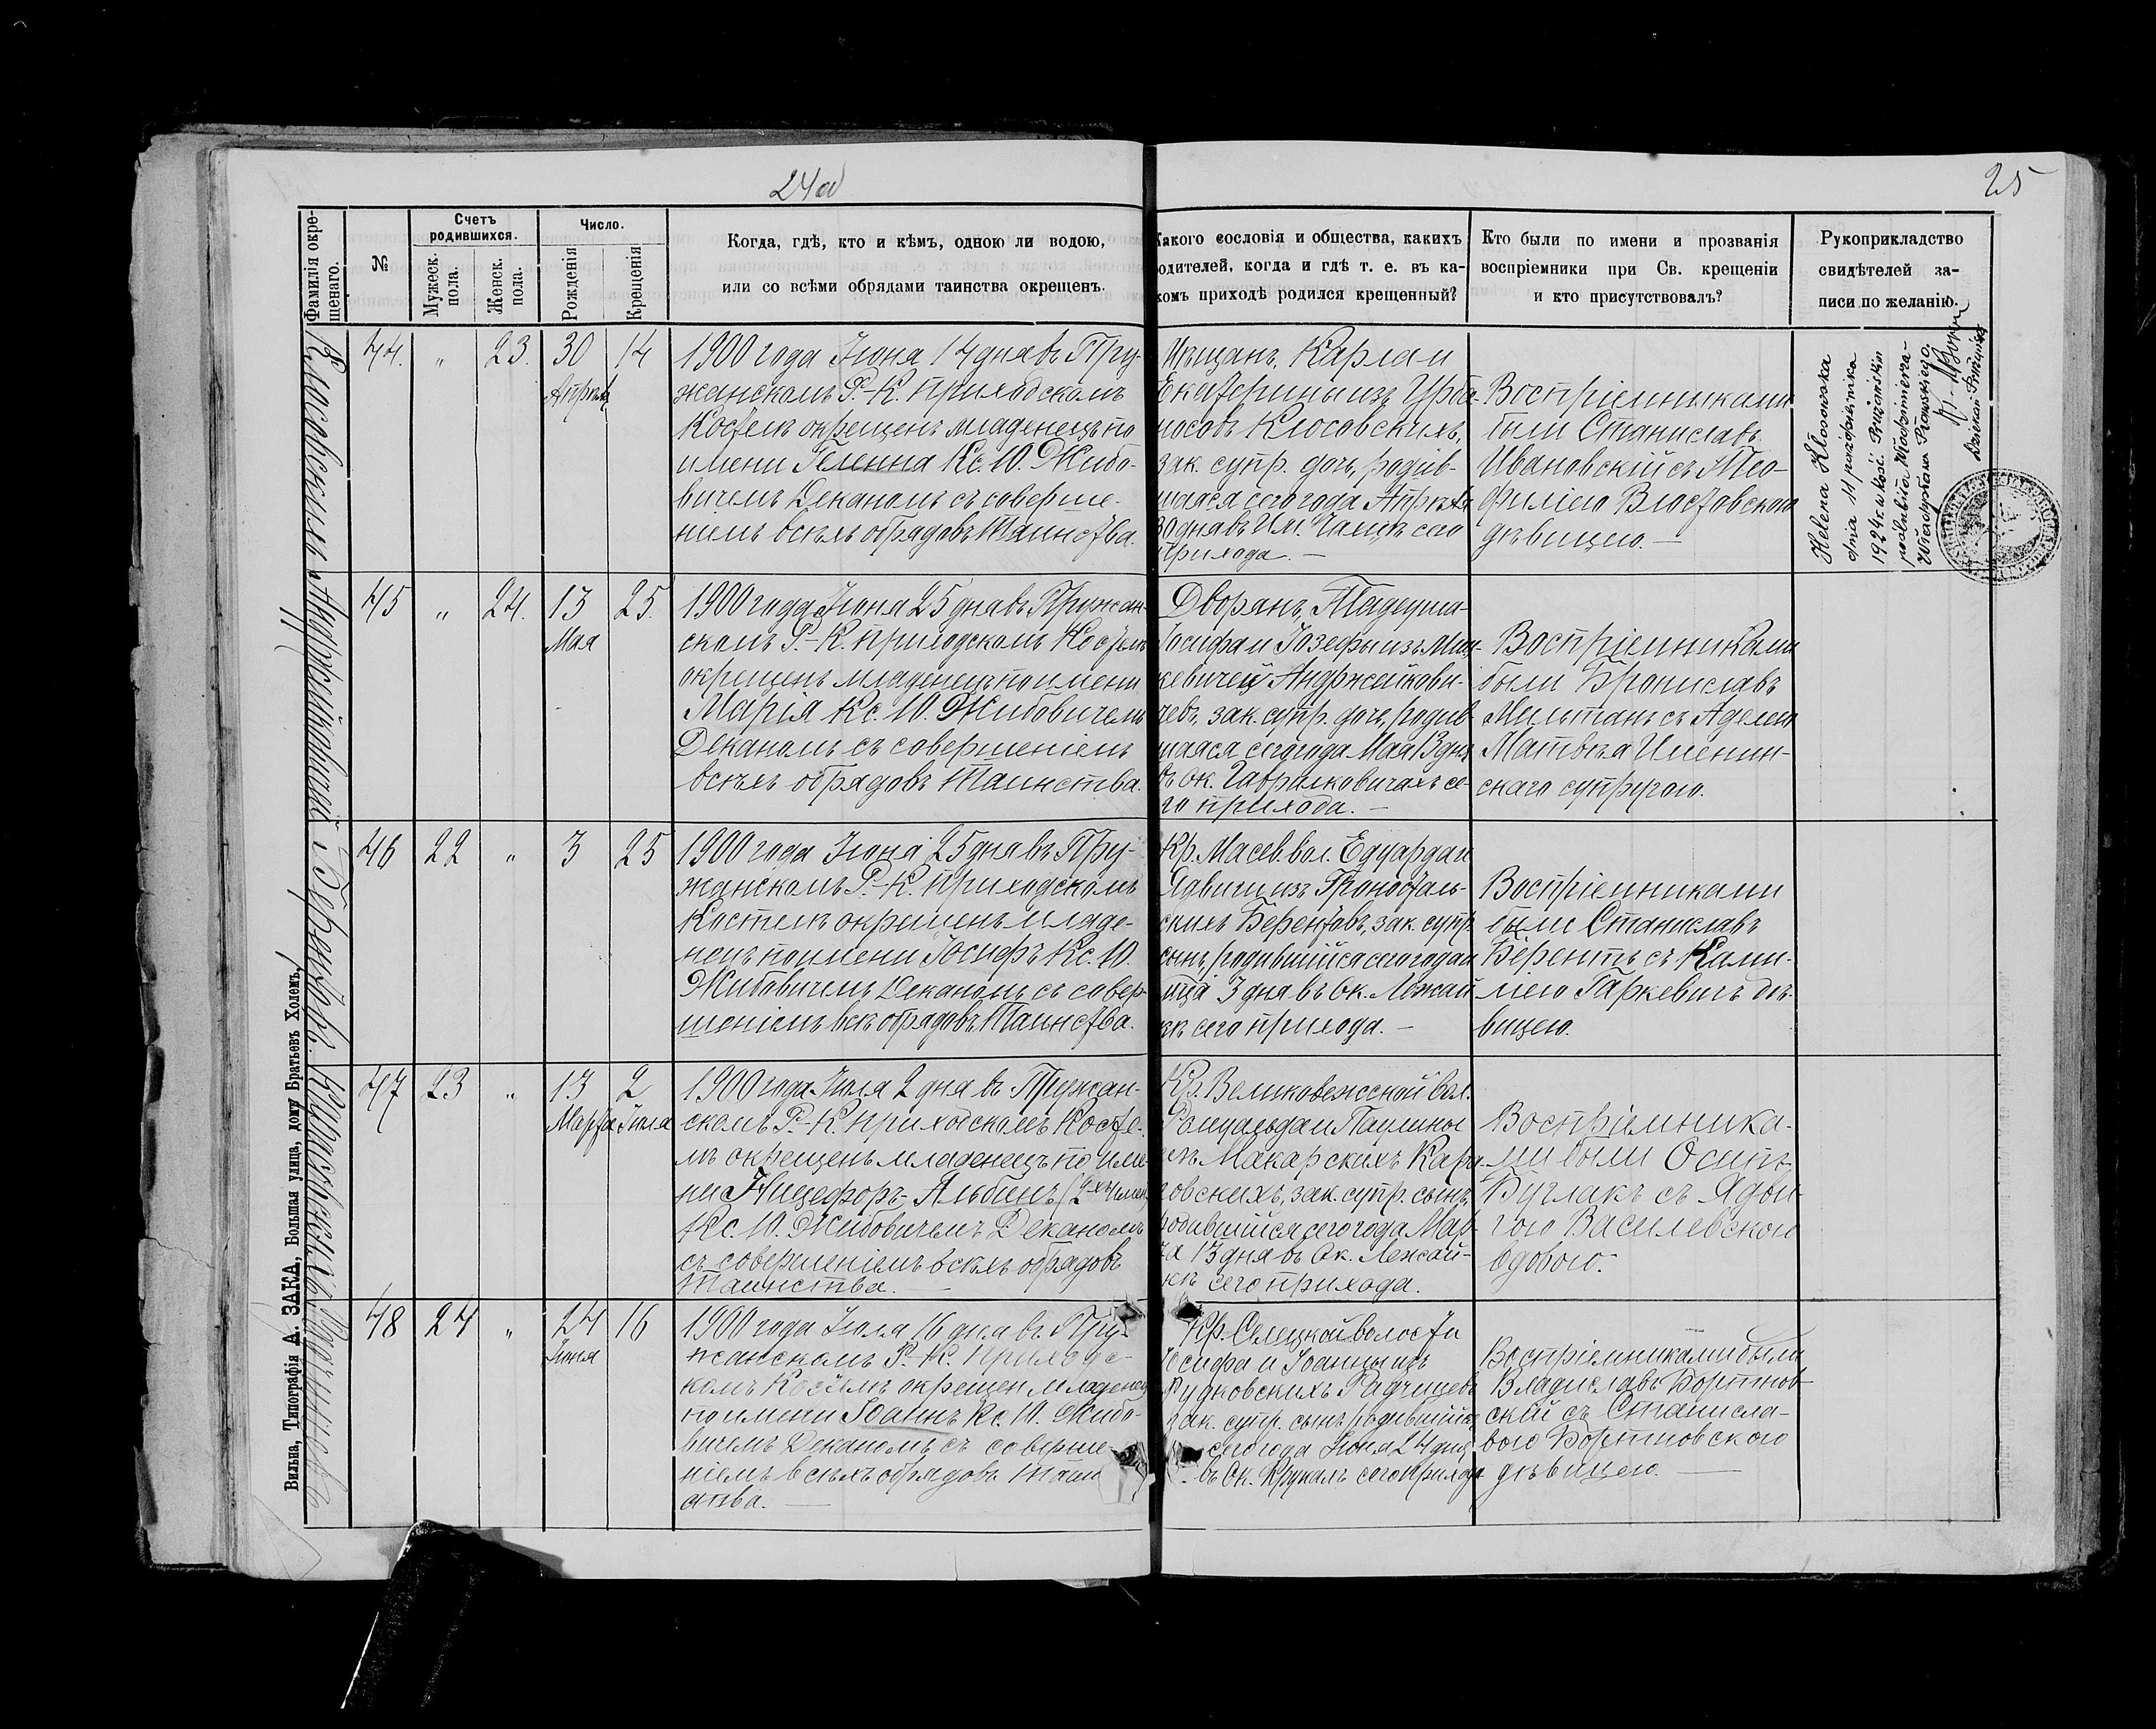 24об
25
Фамилія окре-
щенаго.
№
Счетъ
родившихся.
Мужеск.
пола.
Женск.
пола.
Число.
Рожденія
Крещенія
Когда, гдѣ, кто и кѣмъ, одною ли водою,
или со всѣми обрядами таинства окрещенъ.
Какого сословія и общества, какихъ
родителей, когда и гдѣ т. е. въ ка-
комъ приходѣ родился крещенный?
Кто были по имени и прозванія
воспріемники при Св. крещеніи
и кто присутствовалъ?
Рукоприкладство
свидѣтелей за-
писи по желанію.
Клосовскихъ
44. " 23. 30 14
Апрѣля
1900 года Іюня 14 дня въ Пру-
жанскомъ Р.-К. Приходскомъ
Костелѣ окрещенъ младенецъ по
имени Геленна Кс. Ю. Жибо-
вичемъ Деканомъ съ соверше-
ніемъ всѣхъ обрядовъ Таинства.
Мѣщанъ, Карла и
Екатерины изъ Урба-
носовъ Клосовскихъ,
зак. супр. дочь, родив-
шаяся сего года Апрѣля
30 дня въ Им. сего
прихода. —
Воспріемниками
были Станиславъ
Ивановскій съ Тео-
филіею Влостовскою
дѣвицею. —
Helena Kłosowska
dnia 11 października
1924 r. w kośc. Prużańskim
poślubiła Włodzimierza-
Władysława
Dziekan Prużański
Андржейковичъ
45 " 24. 13 25.
Мая
1900 года Іюня 25 дня въ Пружан-
скомъ Р.-К. приходскомъ Костелѣ
окрещенъ младенецъ по имени
Марія Кс. Ю. Жибовичемъ
Деканомъ съ совершеніемъ
всѣхъ обрядовъ Таинства.
Дворянъ, Тадеуша-
Іосифа и Іозефы изъ Миц-
кевичей Андржейкови-
чевъ, зак. супр. дочь, родив-
шаяся сего года Мая 13 дня
въ ок. Гавриловичахъ се-
го прихода. —
Воспріемниками
были Брониславъ
Мильтанъ съ Аделею
Матвѣя Именин-
скаго супругою.
Беренховъ
46 22 " 3 25
1900 года Іюня 25 дня въ Пру-
жанскомъ Р.-К. приходскомъ
Костелѣ окрещенъ младе-
нецъ по имени Іосифъ Кс. Ю.
Жибовичемъ Деканомъ съ совер-
шеніемъ всѣ обрядовъ Таинства.
Кр. Масев. вол. Едуарда и
Ядвиги изъ Гроносталь-
скихъ Берентовъ, зак. супр.
сынъ, родившійся сего года и
мѣца 3 дня въ Ок. Лежай
кѣ сего прихода. —
Воспріемниками
были Станиславъ
Берентъ съ Ками-
ліею Гаркевичъ дѣ-
вицею.
47 23 " 13 2
Марта Іюля
1900 года Іюля 2 дня въ Пружан-
скомъ Р.-К. приходскомъ Косте-
лѣ окрещенъ младенецъ по име-
ни Ницефоръ-Альбинъ (2-хъ имен.)
Кс. Ю. Жибовичемъ Деканомъ
съ совершеніемъ всѣхъ обрядовъ
таинства. —
Кр. Великовежской вол.
Ромуальда и Паулины
изъ Макарскихъ
зак. супр. сынъ,
родившійся сего года Мар-
та 13 дня въ Ок. Лежай-
кѣ сего прихода.
Воспріемника-
ми были Осипъ
Буглакъ съ Ядви-
гою Василевскою
вдовою.
Радчицевъ
48 24 " 24 16
Іюня
1900 года Іюля 16 дня въ Пру-
жанскомъ Р. К. приходс-
комъ Костелѣ окрещен младенец
по имени Іоаннъ Кс. Ю. Жибо-
вичемъ Деканомъ съ соверше-
ніемъ всѣхъ обрядовъ Таин
ства. —
Кр. Селецкой волости
Іосифа и Іоанны изъ
Рудковскихъ Радчицевъ
зак. супр. сынъ, родившійся
сего года Іюня 24 дня
въ Ок. сего прихода
Воспріемниками были
Владиславъ Бортнов-
скій съ Станисла-
вою Бортновскою
дѣвицею. —
Вильна, Типографія А. ЗАКА, Большая улица, домъ Братьевъ Холемъ,